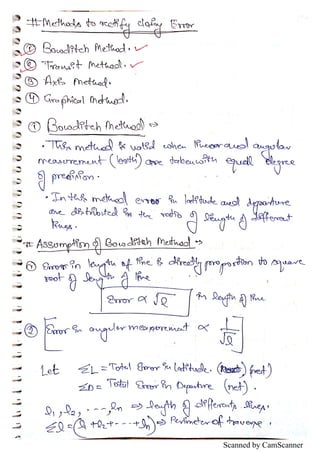 # Methods to rectify closing Error
① Bowditch Method. ✓
② Transit Method. ✓
③ Axis Method.
④ Graphical Method.
① Bowditch Method ⇒
• This method is valid when linear and angular
measurement (both) are taken with equal degree
of precision.
• In this method error in latitude and departure
are distributed in the ratio of length of different
lines.
# Assumption of Bowditch Method →
① Error in length of line is directly proportion to square
root of length of line
Error ∝ √l l is length of line
② Error in angular measurement ∝ 1/√l
Let ΣL = Total Error in latitude. (net)
ΣD = Total Error in Departure (net).
l₁, l₂, ---, ln ⇒ length of different lines.
Σl = (l₁ + l₂ + --- + ln) ⇒ Perimeter of traverse.
Scanned by CamScanner